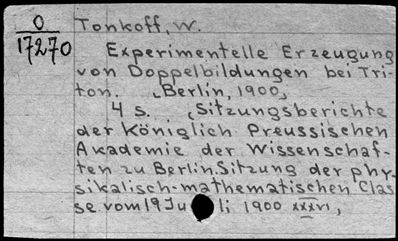 O Tonkoff, W.
17270
Experimentelle Erzeugung
von Doppelbildungen bei Tri-
ton. (Berlin, 1900,)
4 s. (Sitzungsberichte
der Königlich Preussischen
Akademie der Wissenschaf-
ten zu Berlin. Sitzung der phy-
sikalisch-mathematischen Clas
se vom 19 Juli 1900 XXXVI,